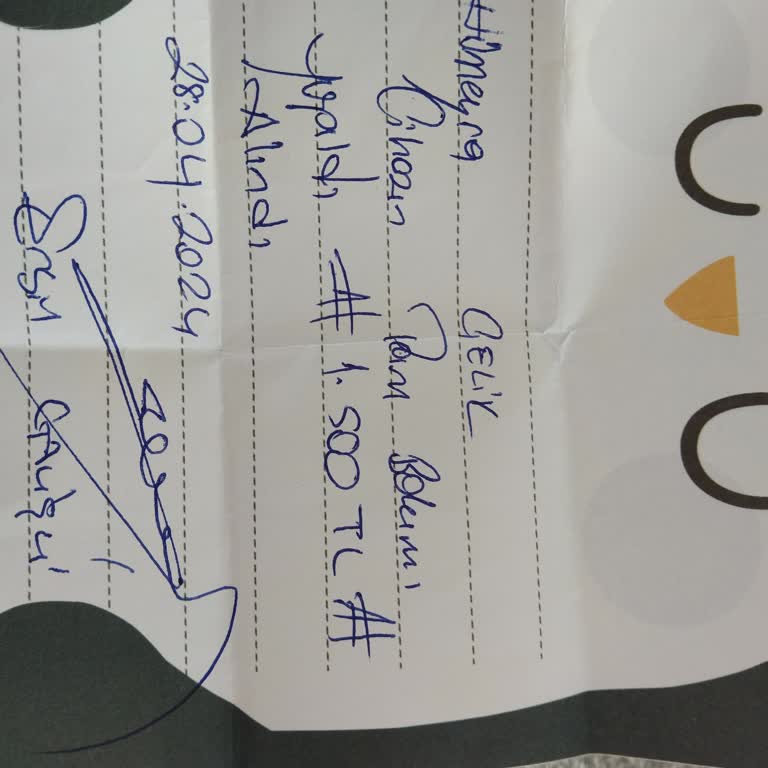 Hümeyra ÇELİK
Cihazın Tam Bakımı
yapıldı # 1.500 TL #
Alındı
28.04.2024
Ersin ÇALIŞ